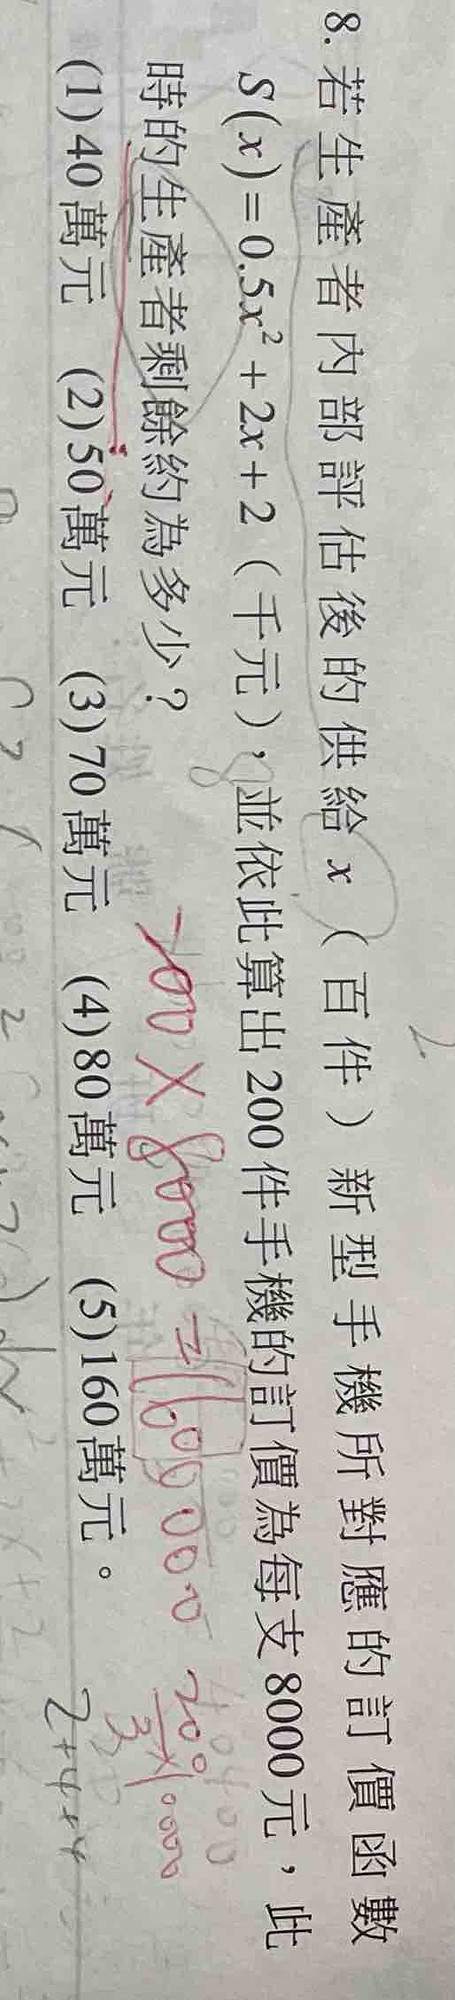 8. 若生產者內部評估後的供給 x（百件）新型手機所對應的訂價函數
S(x)=0.5x²+2x+2（千元），並依此算出200件手機的訂價為每支8000元，此
時的生產者剩餘約為多少？
(1)40萬元 (2)50萬元 (3)70萬元 (4)80萬元 (5)160萬元。
2+4+4